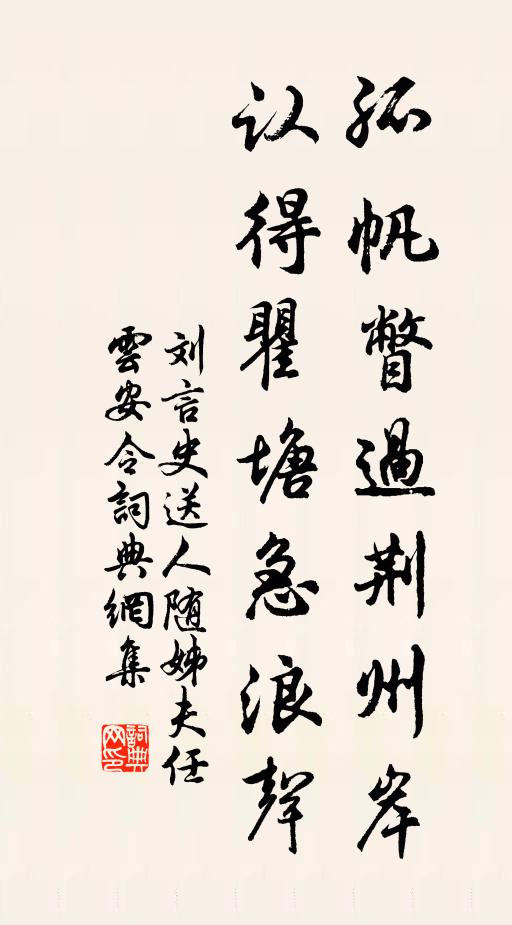 孤帆瞥過荆州岸
认得瞿塘急浪聲
刘言史送人随姊夫任
雲安令詞典網集
詞典
网印